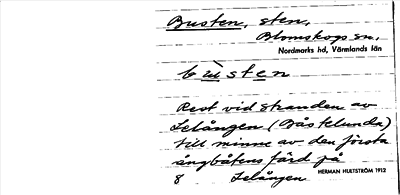 Busten, sten,
Blomskogs sn.
Nordmarks hd, Värmlands län
bùsten
Rest vid stranden av
Lelången (Båstelunda)
till minne av den första
ångbåtens färd på
8 Lelången.
HERMAN HULTSTRÖM 1912